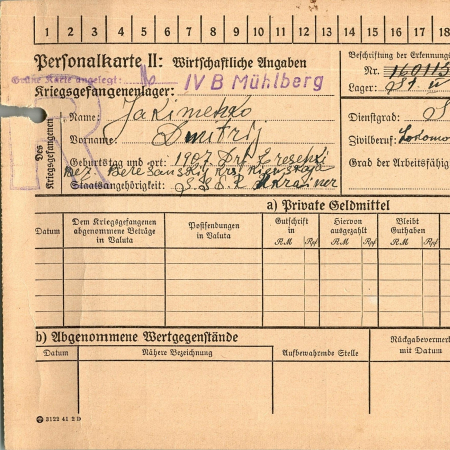 1 2 3 4 5 6 7 8 9 10 11 12 13 14 15 16 17 18
Personalkarte II: Wirtschaftliche Angaben
Beschriftung der Erkennung
Grüne Karte angelegt: No
IV B Mühlberg
Nr. 160115
Kriegsgefangenenlager:
Lager:
Des Kriegsgefangenen
R
Name: Jakimenko
Dienstgrad: S
Vorname: Dmitrij
Zivilberuf: Lokomo
Geburtstag und -ort: 1907.
Grad der Arbeitsfähig
Bez. Beresanskij
Staatsangehörigkeit: SSSR Ukrainer
a) Private Geldmittel
Datum
Dem Kriegsgefangenen abgenommene Beträge in Valuta
Postsendungen in Valuta
Gutschrift in
RM Rpf
Hiervon ausgezahlt
RM Rpf
Bleibt Guthaben
RM Rpf
Datum
b) Abgenommene Wertgegenstände
Datum
Nähere Bezeichnung
Aufbewahrende Stelle
Rückgabeverme
mit Datum
3122 41 2 D